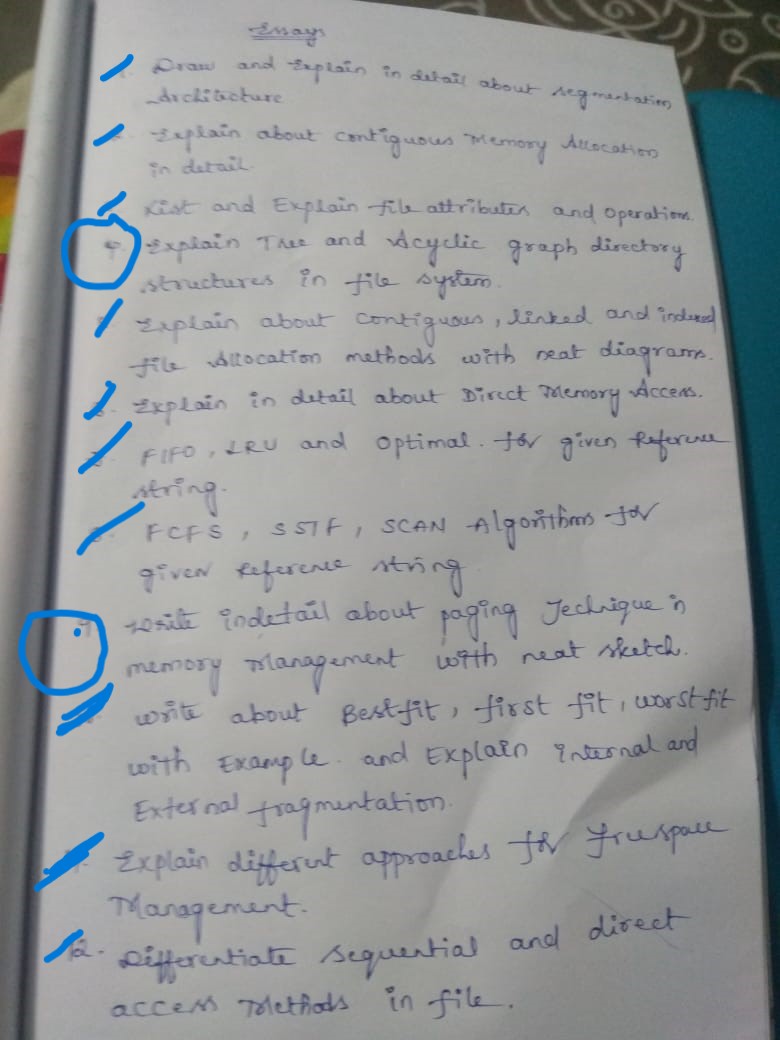 Essays
1. Draw and Explain in detail about segmentation
Architecture
Explain about contiguous Memory Allocation
in detail.
List and Explain file attributes and operations.
4. Explain Tree and Acyclic graph directory
structures in file system.
Explain about contiguous, linked and indexed
file Allocation methods with neat diagrams.
6. Explain in detail about Direct Memory Access.
FIFO, LRU and optimal. for given Reference
string.
FCFS, SSTF, SCAN Algorithms for
given Reference string
9. write indetail about paging Technique in
memory Management with neat sketch.
write about Bestfit, first fit, worstfit
with Example. and Explain internal and
External fragmentation.
Explain different approaches for freespace
Management.
12. Differentiate sequential and direct
access Methods in file.